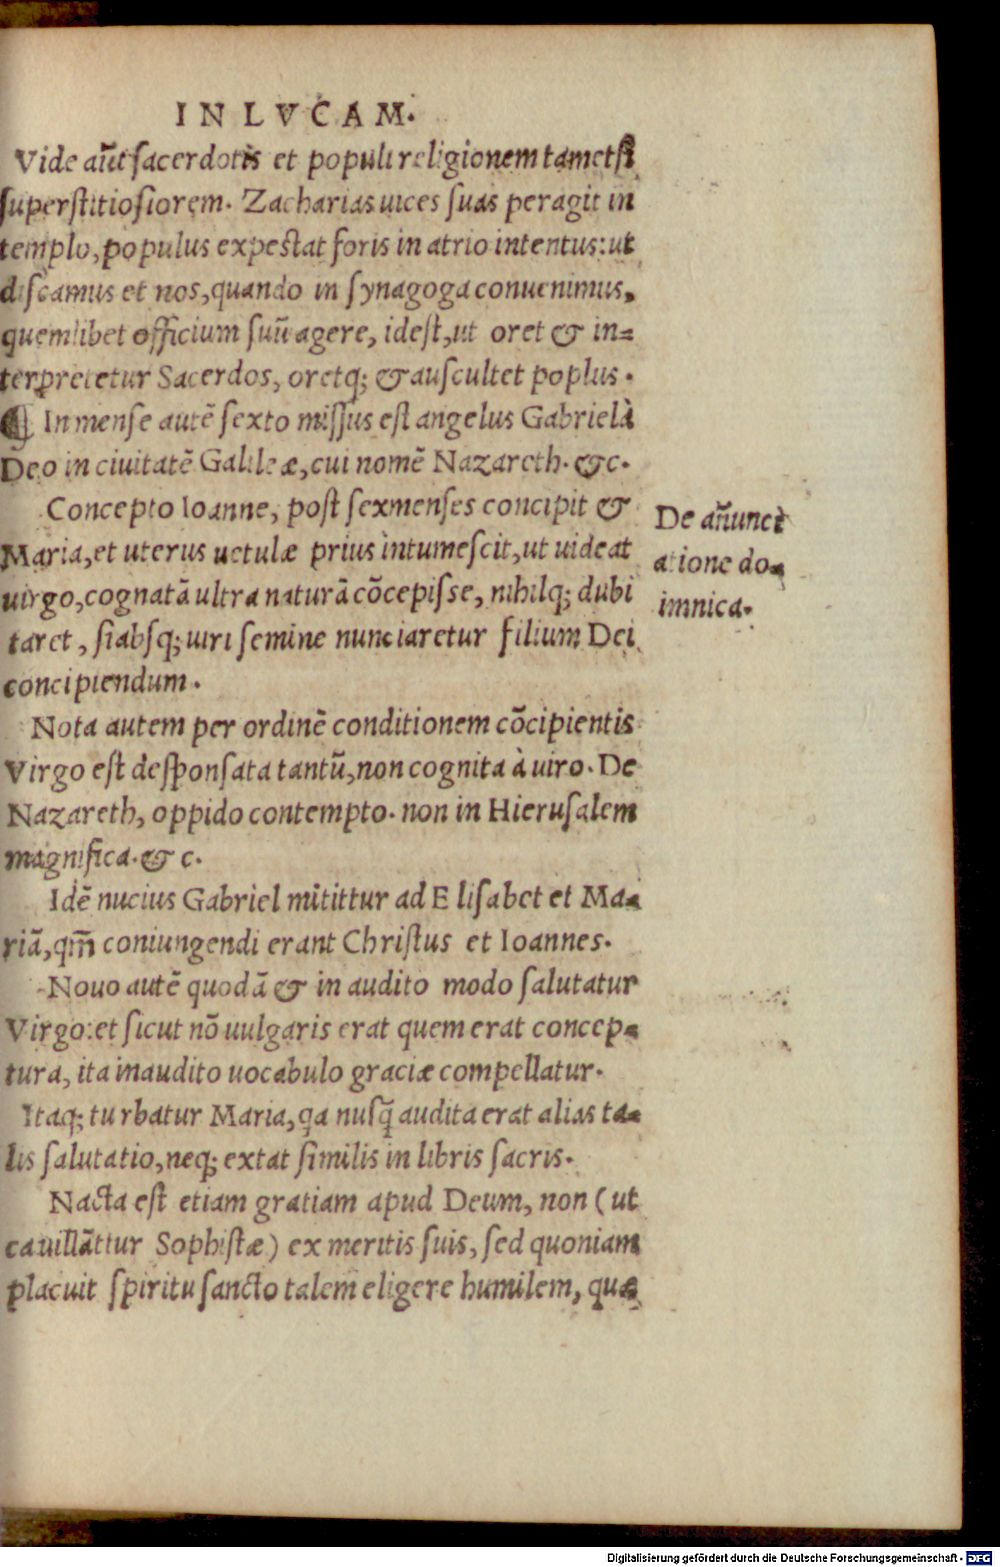 IN LVCAM.
Vide aūt sacerdotis et populi religionem tametsi
superstitiosiorem. Zacharias uices suas peragit in
templo, populus expectat foris in atrio intentus: ut
discamus et nos, quando in synagoga conuenimus,
quemlibet officium suū agere, idest, ut oret & in-
terpretetur Sacerdos, oretq; & auscultet poplus.
¶ In mense autē sexto missus est angelus Gabriel à
Deo in ciuitatē Galileæ, cui nomē Nazareth. &c.
Concepto Ioanne, post sex menses concipit &
Maria, et uterus uetulæ prius intumescit, ut uideat
uirgo, cognatā ultra naturā cōcepisse, nihilq; dubi
taret, si absq; uiri semine nunciaretur filium Dei
concipiendum.
De añunci
atione do-
imnica.
Nota autem per ordinē conditionem cōcipientis
Virgo est desponsata tantū, non cognita à uiro. De
Nazareth, oppido contempto. non in Hierusalem
magnifica. & c.
Idē nucius Gabriel mitittur ad E lisabet et Ma-
riā, qm̄ coniungendi erant Christus et Ioannes.
Nouo autē quodā & in audito modo salutatur
Virgo: et sicut nō uulgaris erat quem erat concep-
tura, ita inaudito uocabulo graciæ compellatur.
Itaq; tu rbatur Maria, qa nusq̄ audita erat alias ta-
lis salutatio, neq; extat similis in libris sacris.
Nacta est etiam gratiam apud Deum, non (ut
cauillāttur Sophistæ) ex meritis suis, sed quoniam
placuit spiritu sancto talem eligere humilem, quæ
Digitalisierung gefördert durch die Deutsche Forschungsgemeinschaft - DFG